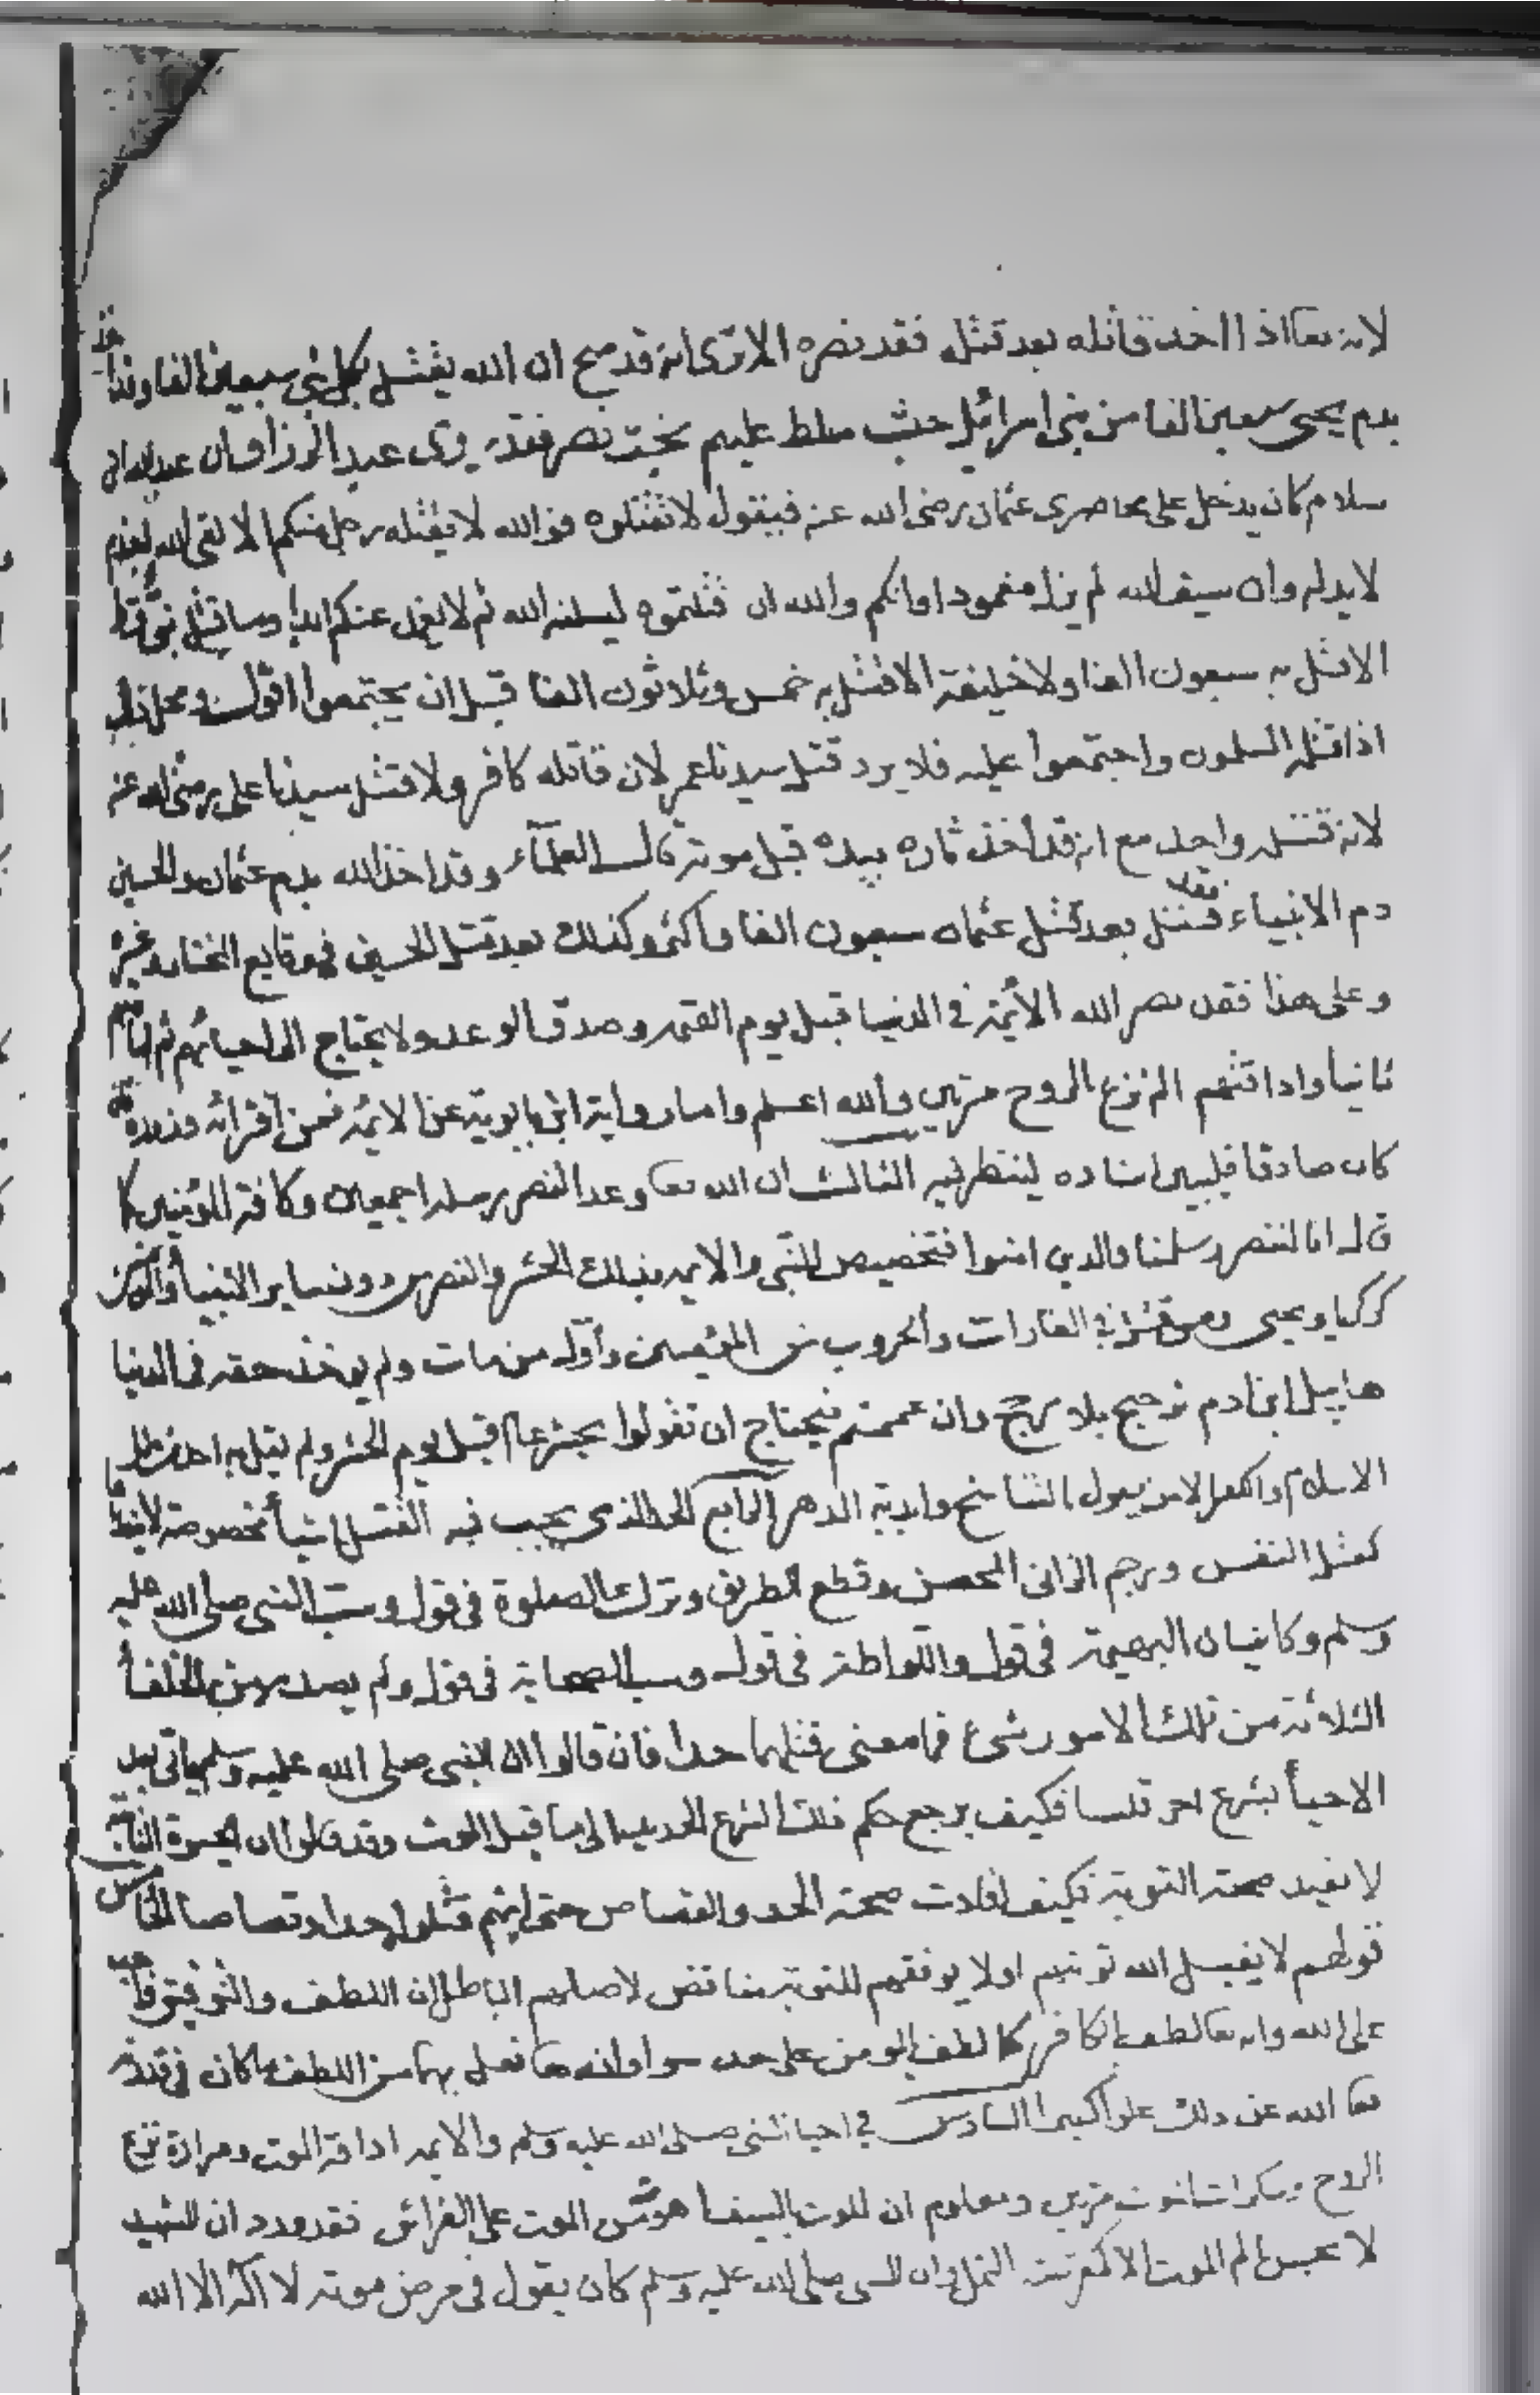 لانه تعا اذا اخذ قاتله بعد قتله فقد نصره الا ترى انه قد صح ان الله يقتل بكل نبي سبعين الفا وقد اخذ
بدم يحيى سبعين الفا من بني اسرائيل حيث سلط عليهم بخت نصر فقد روى عبد الرزاق ان عبد الله ابن
سلام كان يدخل على محاصري عثمان رضى الله عنه فيقول لا تقتلوه فوالله لا يقتله رجل منكم الا لقى الله اجذم
لا يد له وان سيف الله لم يزل مغمودا وانكم والله ان قتلتموه ليسلنه الله ثم لا يغمد عنكم ابدا وما قتل نبي قط
الا قتل به سبعون الفا ولا خليفة الا قتل به خمس وثلاثون الفا قبل ان يجتمعوا اقول ومحل ذلك
اذا قتله المسلمون واجتمعوا عليه فلا يرد قتل سيدنا عمر لان قاتله كافر ولا قتل سيدنا على رضى الله عنه
لانه قتله واحد مع انه قد اخذ ثاره بيده قبل موته قالـ العلمآء وقد اخذ الله بدم عثمان والحسين
دم الانبياء فقد قتل بعد قتل عثمان سبعون الفا واكثر وكذلك بعد قتل الحسين في وقايع المختار وغيره
وعلى هذا فقد نصر الله الأئمة في الدنيا قبل يوم القيمه وصدق الوعد ولا يحتاج الى احيائهم ثم اماتتهم
ثانيا واذاقتهم الم نزع الروح مرتين والله اعلم واما رواية ابن بابويه عن الائمه فمن افترائه
كان صادقا فليبين اسناده لينظر فيه الثالث ان الله تعا وعد النصر رسله اجمعين وكافة المؤمنين كما
قالـ انا لننصر رسلنا والذين امنوا فتخصيص النبي والايمه بذلك الحشر والنصر دون ساير الانبياء
كزكريا ويحيى ومن قتل في الغارات والحروب من المؤمنين وأول من مات ولم يوخذ حقه في الدنيا
هابيل ابن ادم ترجيح بلا مرجح وان عممتم فيحتاج ان تقولوا بحشر عام قبل يوم الحشر ولم يقل به احد من اهل
الاسلام والكفر الا من يقول بالتناسخ وابدية الدهر الرابع الحد الذي يجب فيه القتل اشيأ مخصوصة لا غيرها
كقتل النفس ورجم الزانى المحصن وقطع الطريق وترك الصلوة فى قول وسب النبى صلى الله عليه
وسلم وكاتيان البهيمة فى قول واللواطة فى قولـ وسب الصحابة فى قول ولم يصدر من الخلفأ
الثلاثة من تلك الامور شئ فما معنى قتلهما حدا فان قالوا ان النبى صلى الله عليه وسلم ياتى بعد
الاحيأ بشرع اخر قلنا فكيف يرجع حكم ذلك الشرع الجديد الى ما قبل الموت وقد قالوا ان الحيوة الثانية
لا تفيد صحة التوبة فكيف افادت صحة الحد والقصاص حتى انهم قتلوا حدا وقصاصا الخامس
قولهم لا يقبل الله توبتهم اولا يوفقهم للتوبة مناقض لاصلهم الباطل ان اللطف والتوفيق واجب
على الله وانه تعا لطف بالكافر كما لطف بالمومن على حد سوا وانه تعا فعل بهما من اللطف ما كان فى قدرته
تعا الله عن ذلك علوا كبيرا السادس في احيا النبى صلى الله عليه وسلم والايمه اذاقة الموت ومرارة نزع
الروح وسكرات الموت مرتين ومعلوم ان الموت بالسيف اهون من الموت على الفراش فقد ورد ان الشهيد
لا يحس الم الموت الا كقرصة النمل وان النبى صلى الله عليه وسلم كان يقول في مرض موته لا اله الا الله